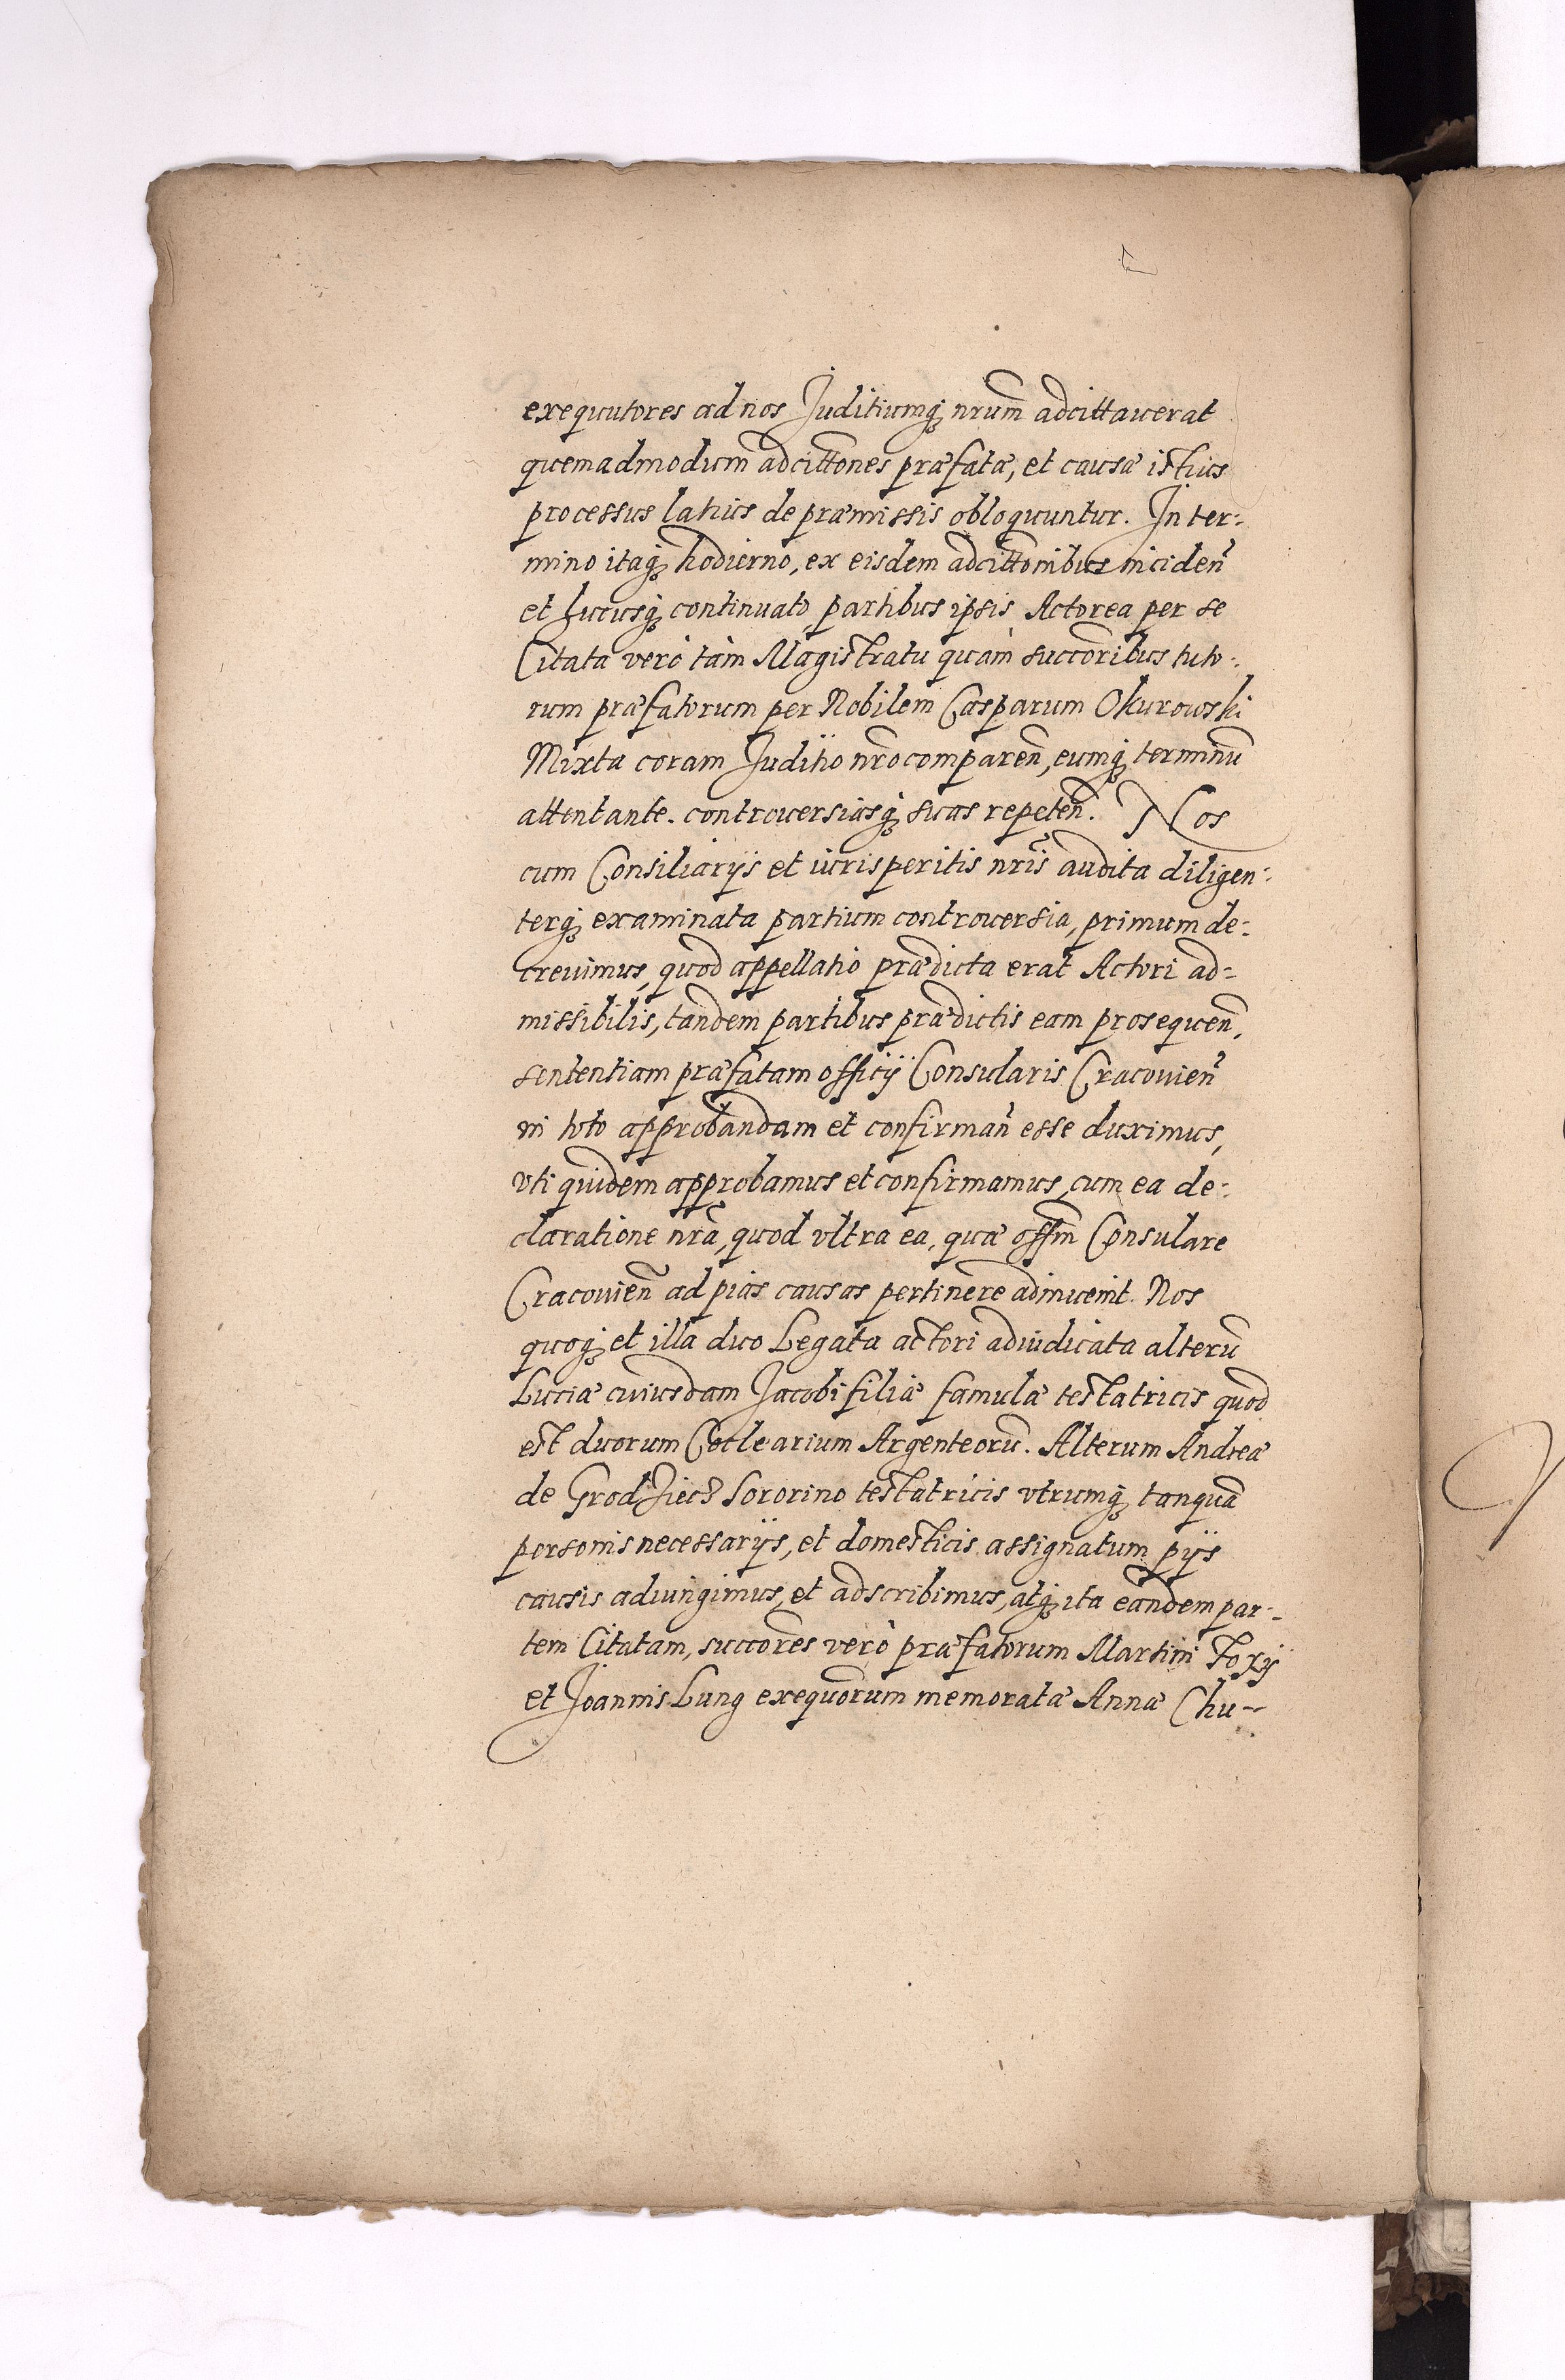 exequutores ad nos Juditiumq₃ nrum̄ adcittauerat
quemadmodum adcittōnes præfatæ, et causæ istius
processus latius de præmissis obloquuntur. In ter-
mino itaq₃ hodierno, ex eisdem adcittōnibus inciden̄
et hucusq₃ continuato, partibus ipsis, Actorea per se
Citata verò tàm Magistratu quàm succōribus tuto-
rum præfatorum per Nobilem Casparum Okurowski
Mixta coram Juditio nr̄o comparen̄, eumq₃ terminū
attentante. controuersiasq₃ suas repeten̄. Nos
cum Consiliarijs et iurisperitis nr̄is audita diligen-
terq₃ examinata partium controuersia, primum de-
creuimus, quod appellatio prædicta erat Actori ad-
missibilis, tandem partibus prædictis eam prosequen̄,
sententiam præfatam officij Consularis Cracouien̄
in toto approbandam et confirman̄ esse duximus,
vti quidem approbamus et confirmamus, cum ea de-
claratione nr̄a, quod vltra ea, quæ offm̄ Consulare
Cracouien̄ ad pias causas pertinere adinuenit. Nos
quoq₃ et illa duo Legata actori adiudicata alterū
Luciæ cuiusdam Jacobi filiæ famulæ testatricis quod
est duorum Coclearium Argenteorū. Alterum Andreæ
de Grodziecz Sororino testatricis vtrumq₃ tanquā
personis necessarijs, et domesticis assignatum pijs
causis adiungimus, et adscribimus, atq₃ ita eandem par-
tem Citatam, succōres verò præfatorum Martini Foxij
et Joannis Lang exequōrum memoratæ Annæ Chu-